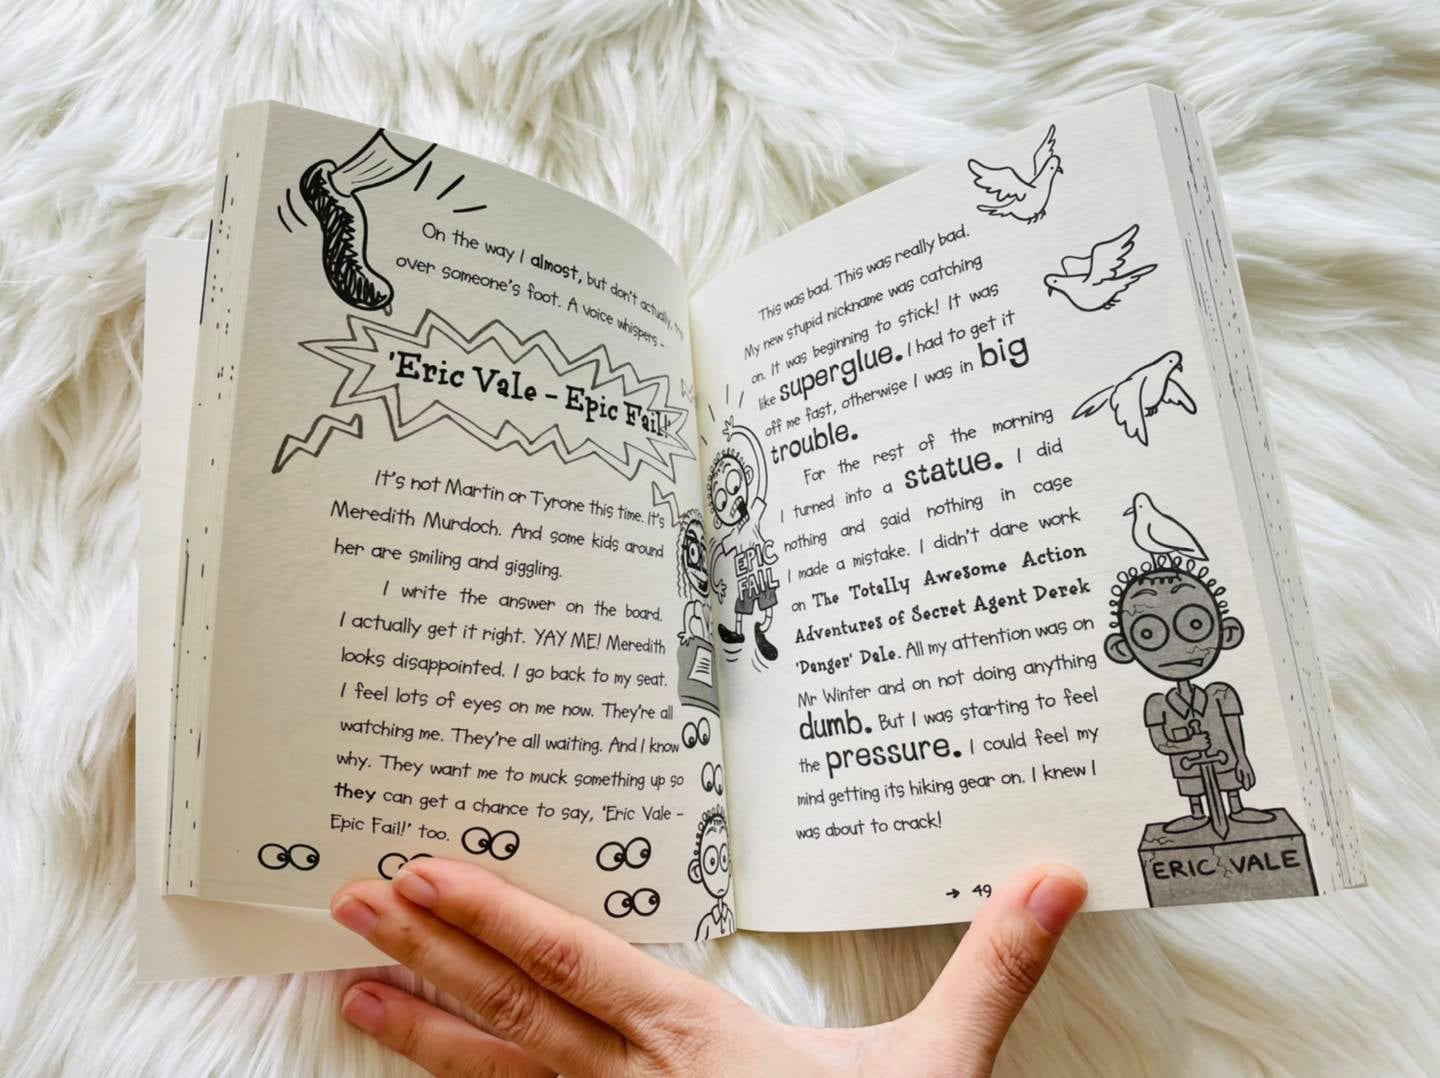 On the way I almost, but don't actually,
over someone's foot. A voice whispers –
'Eric Vale – Epic Fail!'
It's not Martin or Tyrone this time. It's
Meredith Murdoch. And some kids around
her are smiling and giggling.
I write the answer on the board.
I actually get it right. YAY ME! Meredith
looks disappointed. I go back to my seat.
I feel lots of eyes on me now. They're all
watching me. They're all waiting. And I know
why. They want me to muck something up so
they can get a chance to say, 'Eric Vale –
Epic Fail!' too.
EPIC
FAIL
This was bad. This was really bad.
My new stupid nickname was catching
on. It was beginning to stick! It was
like superglue. I had to get it
off me fast, otherwise I was in big
trouble.
For the rest of the morning
I turned into a statue. I did
nothing and said nothing in case
I made a mistake. I didn't dare work
on The Totally Awesome Action
Adventures of Secret Agent Derek
'Danger' Dale. All my attention was on
Mr Winter and on not doing anything
dumb. But I was starting to feel
the pressure. I could feel my
mind getting its hiking gear on. I knew I
was about to crack!
ERIC VALE
→ 49